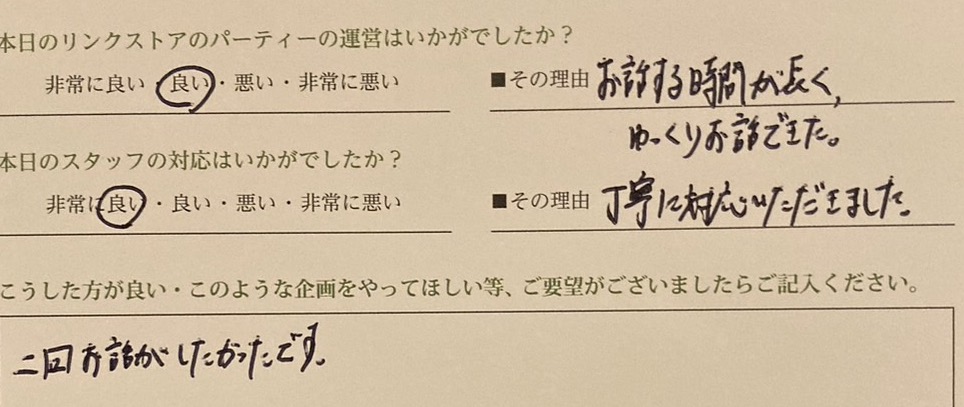 本日のリンクストアのパーティーの運営はいかがでしたか？
非常に良い・良い・悪い・非常に悪い ■その理由 お話する時間が長く、
ゆっくりお話できた。
本日のスタッフの対応はいかがでしたか？
非常に良い・良い・悪い・非常に悪い ■その理由 丁寧に対応いただきました。
こうした方が良い・このような企画をやってほしい等、ご要望がございましたらご記入ください。
二回お話がしたかったです。